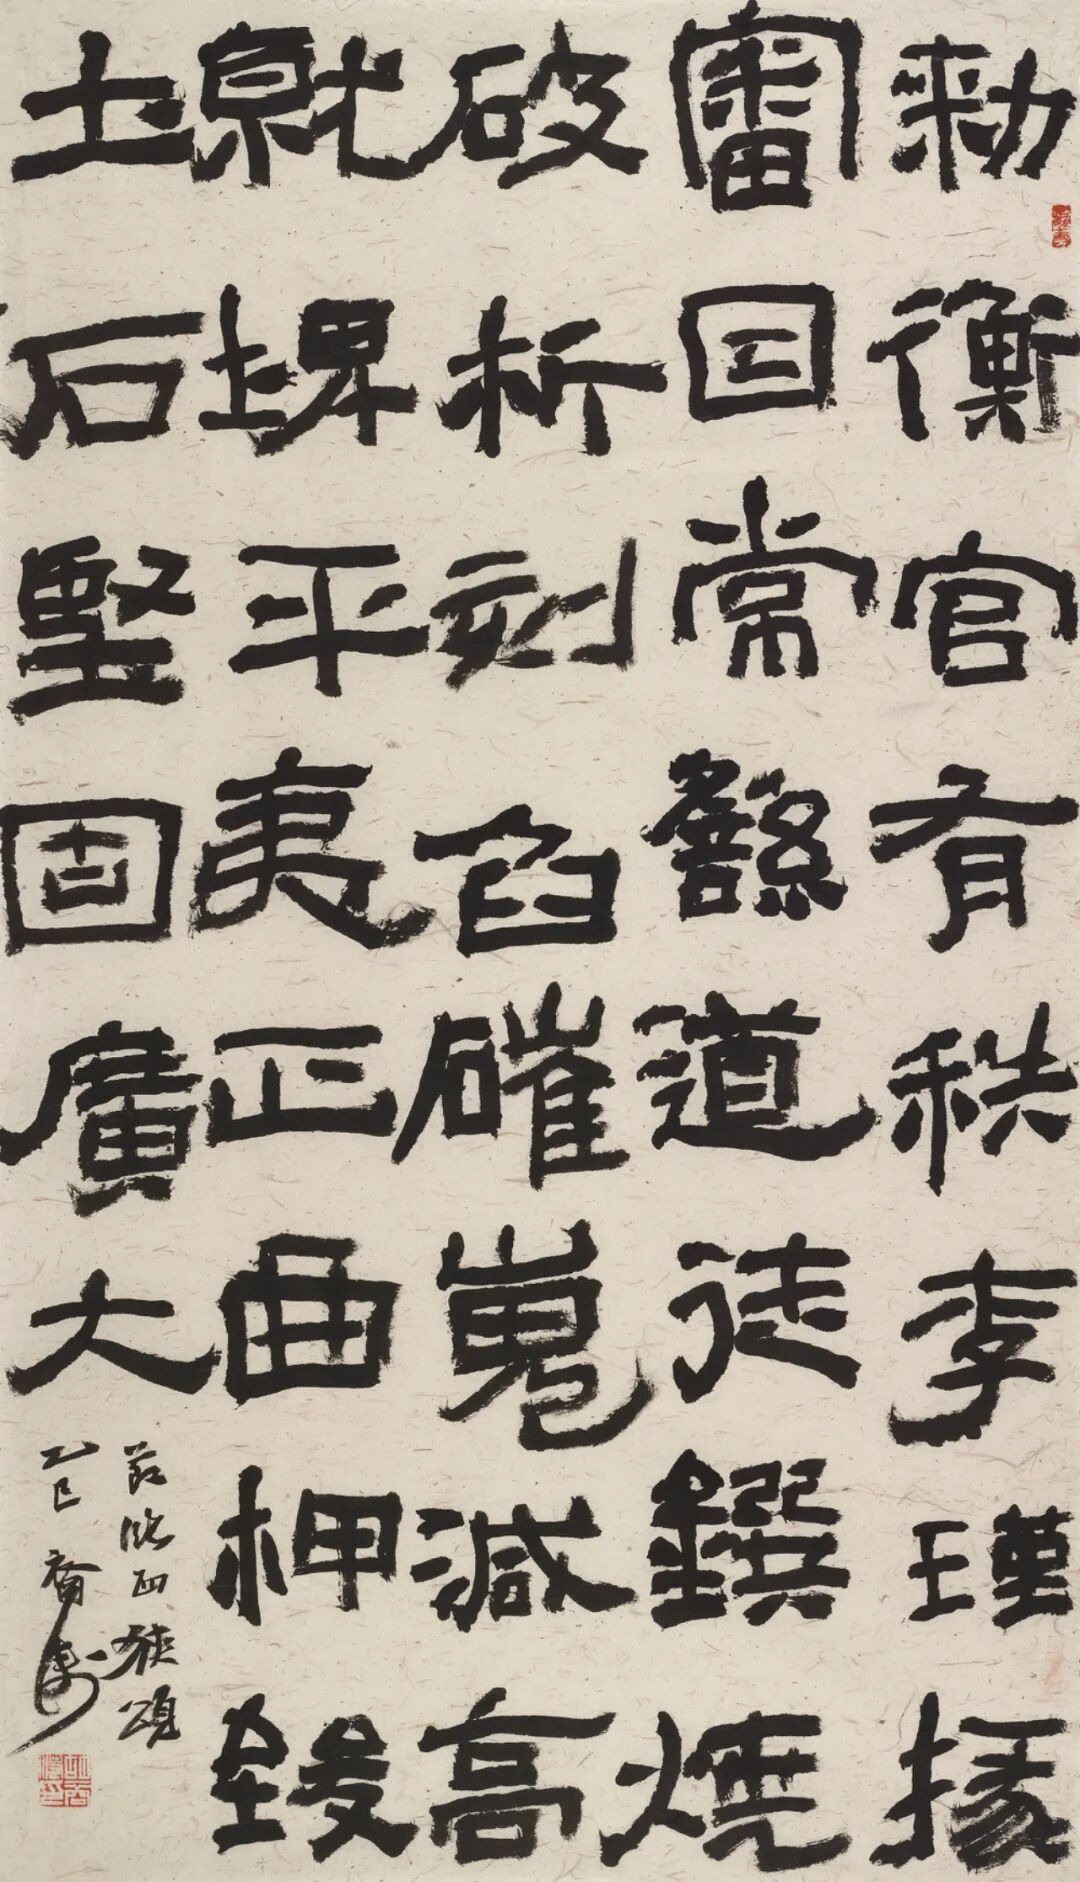 勑衡官有秩李瑾掾
審因常繇道徒鐉燒
破析刻臽磪嵬減高
就埤平夷正曲柙致
土石堅固廣大
節臨西狹頌
乙巳